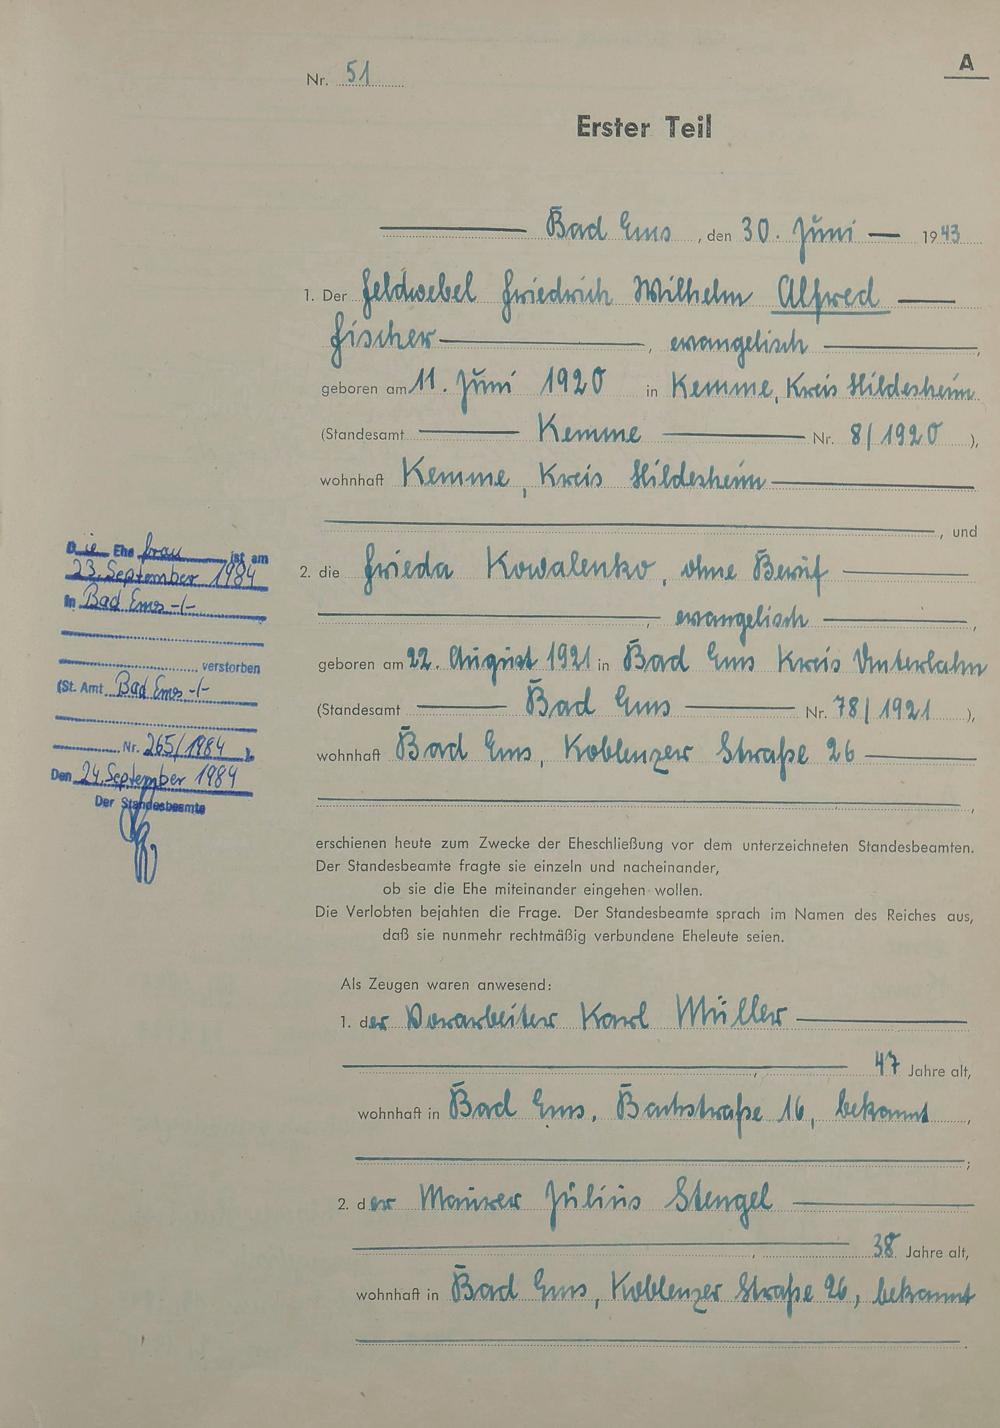 A
Nr. 51
Erster Teil
Bad Ems, den 30. Juni 1943
1. Der Feldwebel Friedrich Wilhelm Alfred
Fischer, evangelisch,
geboren am 11. Juni 1920 in Kemme, Kreis Hildesheim
(Standesamt Kemme Nr. 8/1920),
wohnhaft Kemme, Kreis Hildesheim
, und
2. die Frieda Kowalenko, ohne Beruf
, evangelisch,
geboren am 22. August 1921 in Bad Ems Kreis Unterlahn
(Standesamt Bad Ems Nr. 78/1921),
wohnhaft Bad Ems, Koblenzer Straße 26
,
erschienen heute zum Zwecke der Eheschließung vor dem unterzeichneten Standesbeamten.
Der Standesbeamte fragte sie einzeln und nacheinander,
ob sie die Ehe miteinander eingehen wollen.
Die Verlobten bejahten die Frage. Der Standesbeamte sprach im Namen des Reiches aus,
daß sie nunmehr rechtmäßig verbundene Eheleute seien.
Als Zeugen waren anwesend:
1. der Vorarbeiter Karl Müller
, 47 Jahre alt,
wohnhaft in Bad Ems, Bachstraße 16, bekannt,
;
2. der Maurer Julius Stengel
, 38 Jahre alt,
wohnhaft in Bad Ems, Koblenzer Straße 26, bekannt
Die Ehefrau ist am
23. September 1984
in Bad Ems -/-
verstorben
(St. Amt Bad Ems -/-
Nr. 265/1984 ).
Den 24. September 1984
Der Standesbeamte